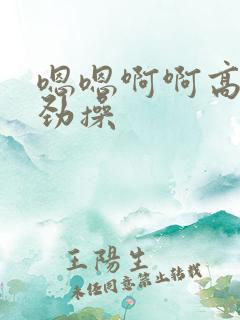 嗯嗯啊啊高
劲操
王陽生
未经同意禁止转载